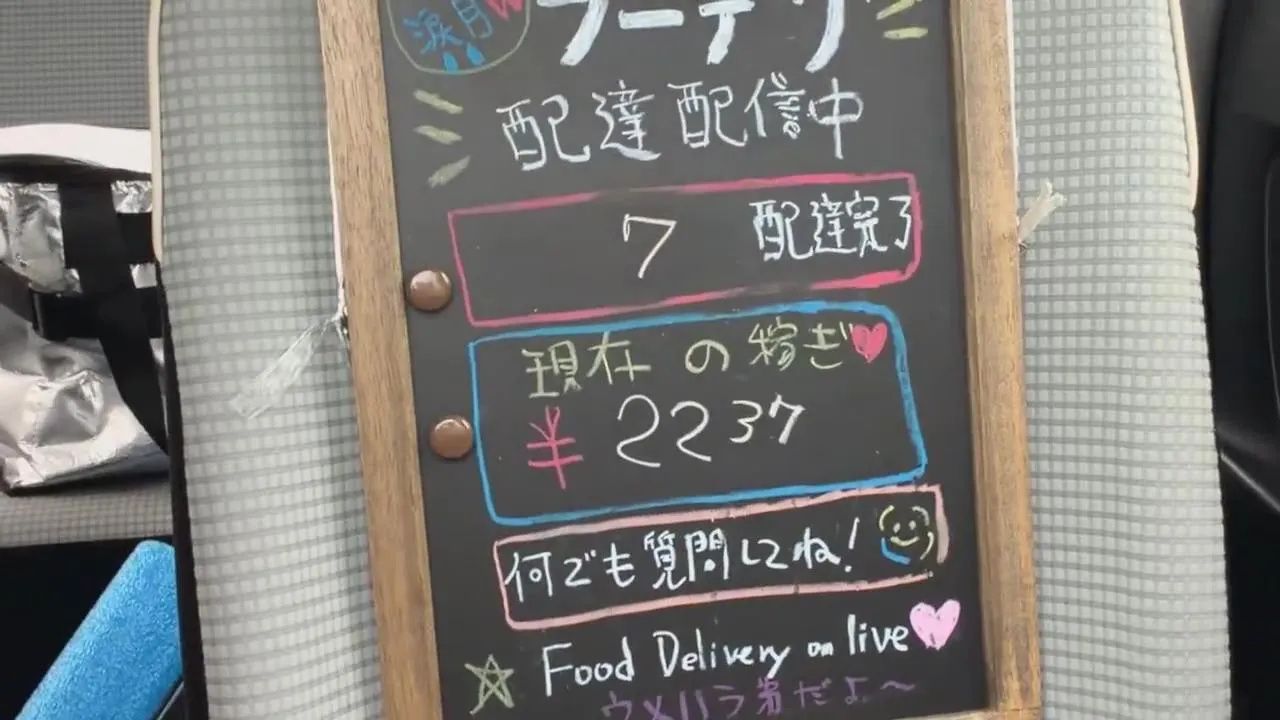 涙月
フーデリ
配達配信中
7 配達完了
現在の稼ぎ
¥2237
何でも質問してね!
Food Delivery on live
ウメハラ弟だよ〜